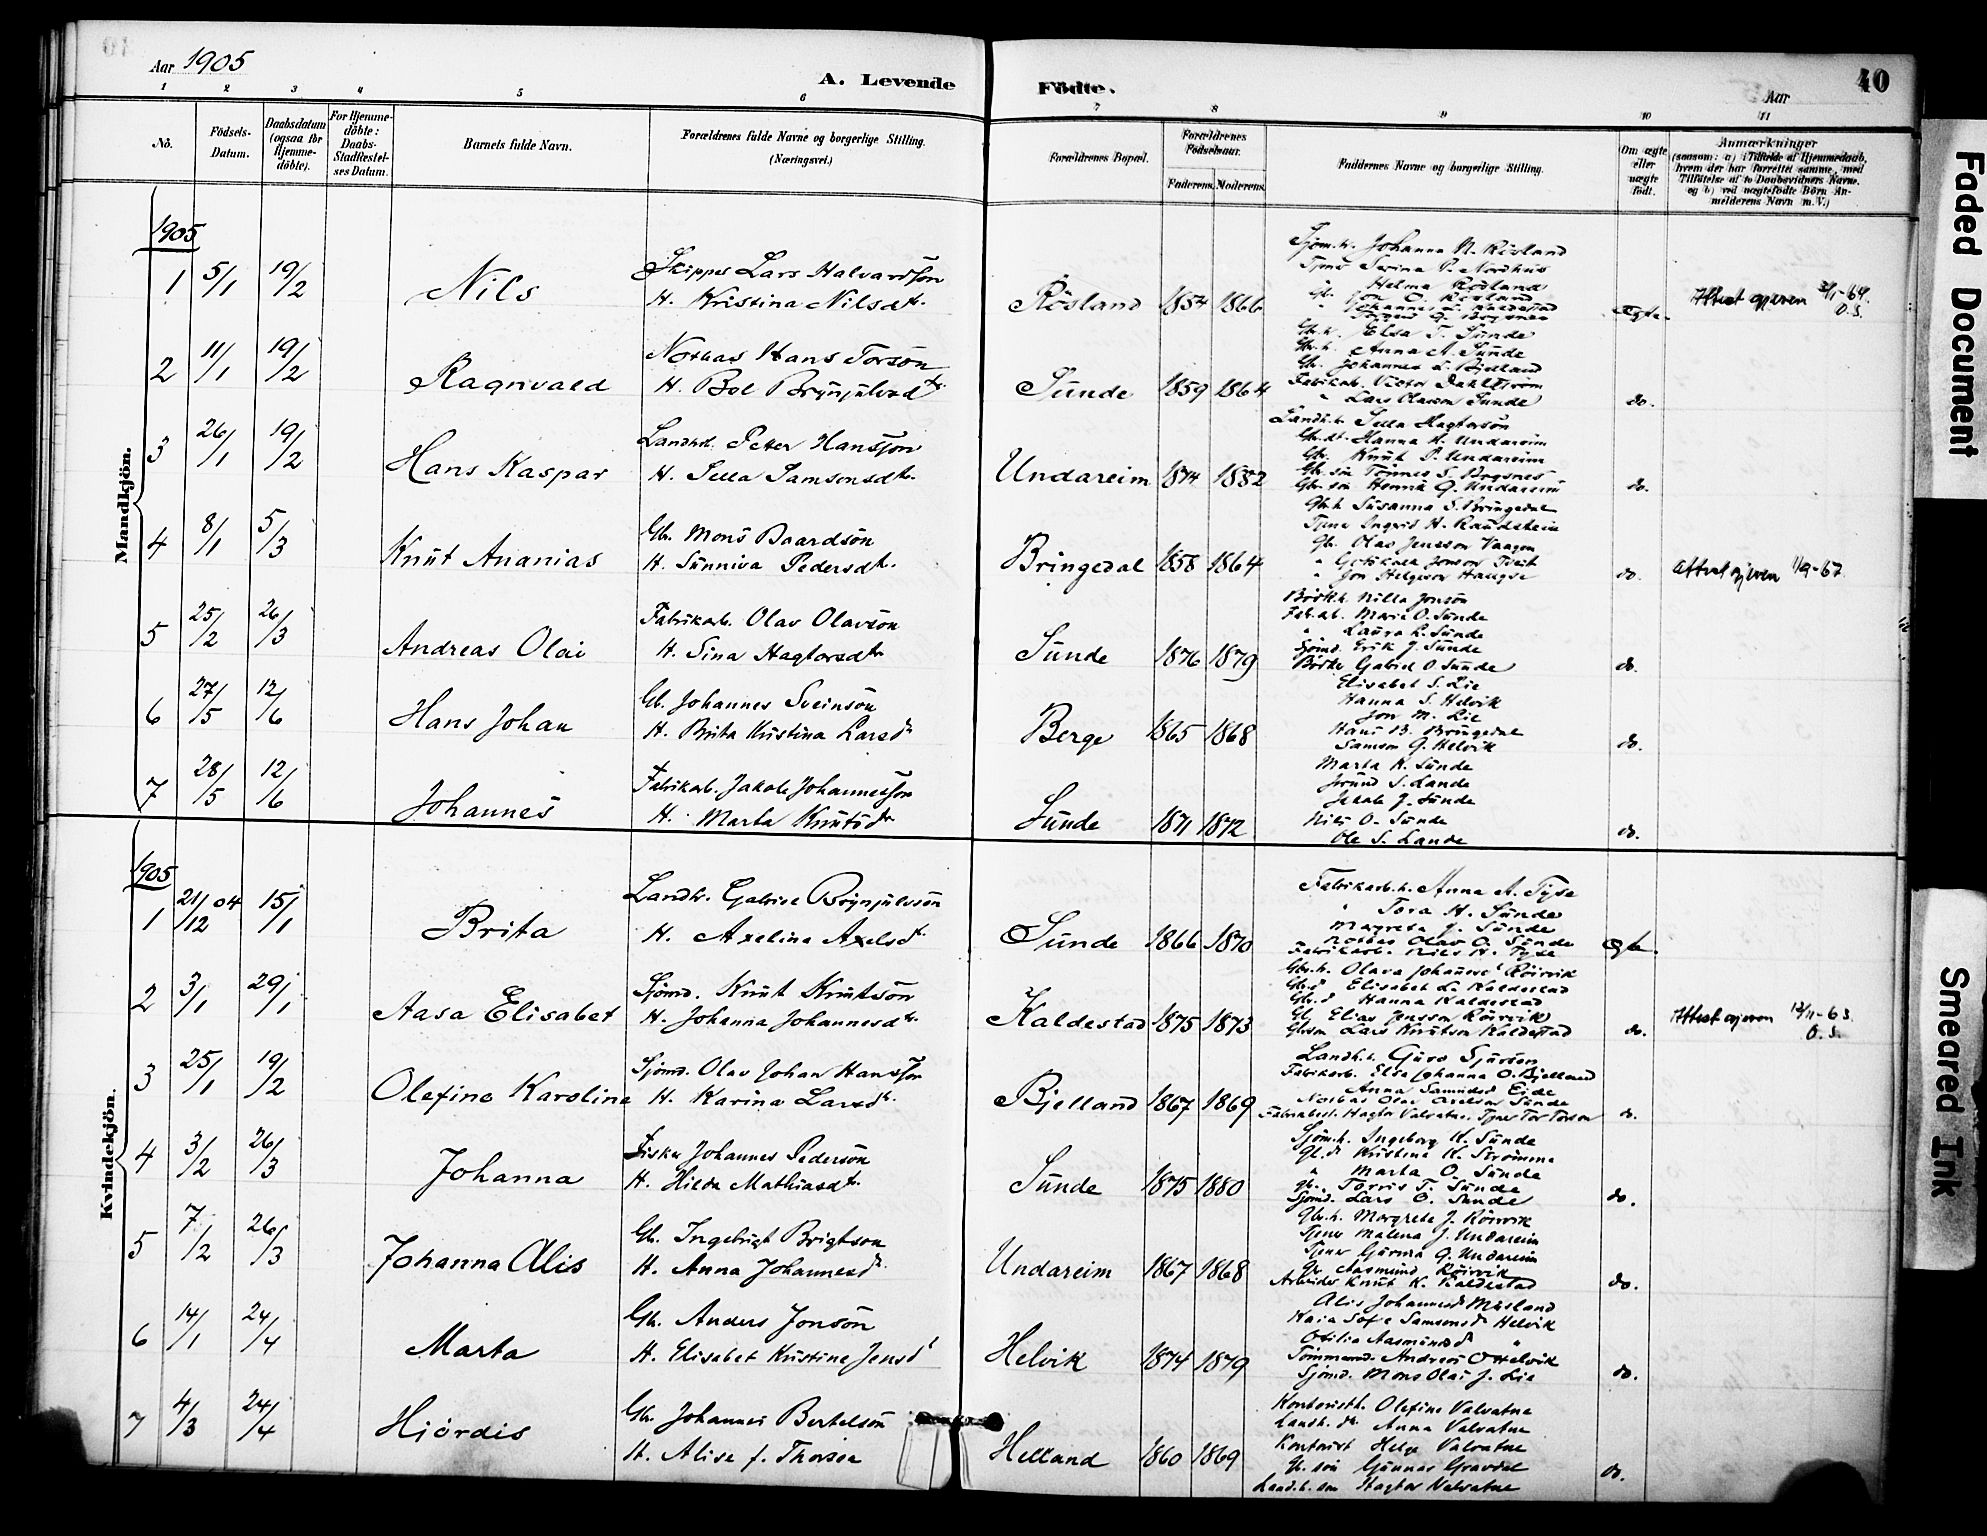 Aar 1905
A. Levende Fødte.
40
Aar
1 2 3 4 5 6 7 8 9 10 11
No.
Fødsels-Datum.
Daabsdatum (ogsaa for Hjemme-døbte).
For Hjemme-døbte: Daabs-Stadfæstel-ses Datum.
Barnets fulde Navn.
Forældrenes fulde Navne og borgerlige Stilling. (Næringsvei.)
Forældrenes Bopæl.
Forældrenes Fødselsaar.
Faderens. Moderens.
Faddernes Navne og borgerlige Stilling.
Om ægte eller uægte født.
Anmærkninger
(saasom: a) i Tilfælde af Hjemmedaab,
hvem der har forrettet samme, med
Tilføielse af to Daabsvidners Navne,
og b) ved uægtefødte Børn An-
melderens Navn m.V.)
Mandkjøn.
1905
1 5/1 19/2 Nils
Skipper Lars Halvardson
H. Kristina Nilsdtr.
Røsland 1854 1866
Sjøm.h. Johanna N. Røsland
Tjener Serina P. Nordhus
Helma Røsland
Ægte.
Attest gjeven 3/1-64.
O.S.
2 11/1 19/2 Ragnvald
Notbas Hans Torson
H. Bol Brynjulvsdtr.
Sunde 1859 1864
Gbr.h. Elsa T. Sunde
Gbr.h. Anna A. Sunde
Gbr. Johannes L. Bjelland
Fabrikarb. Victor Dahlstrøm
" Lars Olason Sunde
do.
3 26/1 19/2 Hans Kaspar
Landhd. Petter Hansson
H. Sella Samsonsdtr.
Undareim 1874 1882
Landh.h. Sella Hagtorson
Gbr.dt. Hanna H. Undareim
Gbr. Knut P. Undareim
Gbr. søn Tønnes S. Brysnes
Gbr. søn Henrik G. Undareim
do.
4 8/1 5/3 Knut Ananias
Gbr. Mons Baardson
H. Sunniva Pedersdtr.
Bringedal 1858 1864
Gbr.h. Susanna S. Bringedal
Tjener Ingrid H. Raudsheim
Gbr. Olav Jensson Vaagen
" Jonson Tveit
" Jon Helgeson Hauge
do.
Attest gjeven 1/9-67.
5 25/2 26/3 Andreas Olai
Fabrikarb. Olav Olavson
H. Sina Hagtorsdtr.
Sunde 1876 1879
Bødk.h. Nilla Jonson
Fab.arb. Marie O. Sunde
" Laura L. Sunde
Sjømd. Erik J. Sunde
Bødker Gabriel O Sunde
do.
6 27/5 12/6 Hans Johan
Gb. Johannes Sveinson
H. Brita Kristina Larsdtr
Berge 1865 1868
Elisabet S. Lie
Hanna S. Helvik
Jon M. Lie
Hans B. Bringedal
Samson G. Helvik
do.
7 28/5 12/6 Johannes
Fabrikarb. Jakob Johannesson
H. Marta Knutsdtr
Sunde 1871 1872
Marta K. Sunde
S. Lande
Jakob J. Sunde
Nils O. Sunde
Ole S. Lande
do.
Kvindekjøn.
1905
1 21/12 04 15/1 Brita
Landh. Gabriel Brynjulvson
H. Axelina Axelsdtr.
Sunde 1866 1870
Fabrikarb.h. Anna A. Tyse
" Tora H. Sunde
Margreta J. Sunde
Notbas Olav O. Sunde
Fabrikarb. Nils H. Tyse
Ægte.
2 3/1 29/1 Aasa Elisabet
Sjømd. Knut Knutson
H. Johanna Johannesdtr.
Kaldestad 1875 1873
Gbr.h. Olava Johannesd Røirvik
Gbr.d Elisabet L. Kaldestad
Gbr.d Hanna Kaldestad
Gb. Elias Jensson Røirvik
Gbrsøn Lars Knutson Kaldestad
do.
Attest gjeven 13/11-63.
O.S.
3 25/1 19/2 Olefine Karoline
Sjømd. Olav Johan Hansson
H. Karina Larsdtr.
Bjelland 1867 1869
Landh.h. Guro Sjurson
Fabrikarb. Elsa Johanna O. Bjelland
Anna Samuelsd Eide
Notbas Olav Axelson Sunde
Fabrikbest. Hagtor Valvatne. Tjener Tor Torson
do.
4 3/2 26/3 Johanna
Fisker Johannes Pederson
H. Hilda Mathiasdtr.
Sunde 1875 1880
Sjøm.h. Ingeborg K. Sunde
Gb.dt Kristina K. Strømme
" Marta O. Sunde
gb. Torris T. Sunde
Sjømd. Lars O. Sunde
do.
5 7/2 26/3 Johanna Alis
Gb. Ingebrigt Brigtson
H. Anna Johannesdtr.
Undareim 1867 1868
Gbr.h. Margreta J. Røirvik
Tjener Malena J. Undareim
Tjener Gurina G. Undareim
Gb. Aasmund Røirvik
Arbeider Knut K. Kaldestad
do.
6 14/1 24/4 Marta
Gb. Anders Jonson
H. Elisabet Kristine Jensdt
Helvik 1874 1879
Alis Johannesd Møsland
Kaia Sofie Samsonsd Helvik
Otilia Aasmundsd "
Tømmermd. Andreas O Helvik
Sjømd. Mons Olai J. Lie
do.
7 4/3 24/4 Hjørdis
Gbr. Johannes Bertelson
H. Alise f. Thorsen
Helland 1860 1869
Kontoristh. Olefine Valvatne
Landh. dtr. Anna Valvatne
Kontorist Helge Valvatne
Gb. søn Gunnar Gravdal
Landh. søn Hagtor Valvatne
do.
Faded Document
Smeared Ink